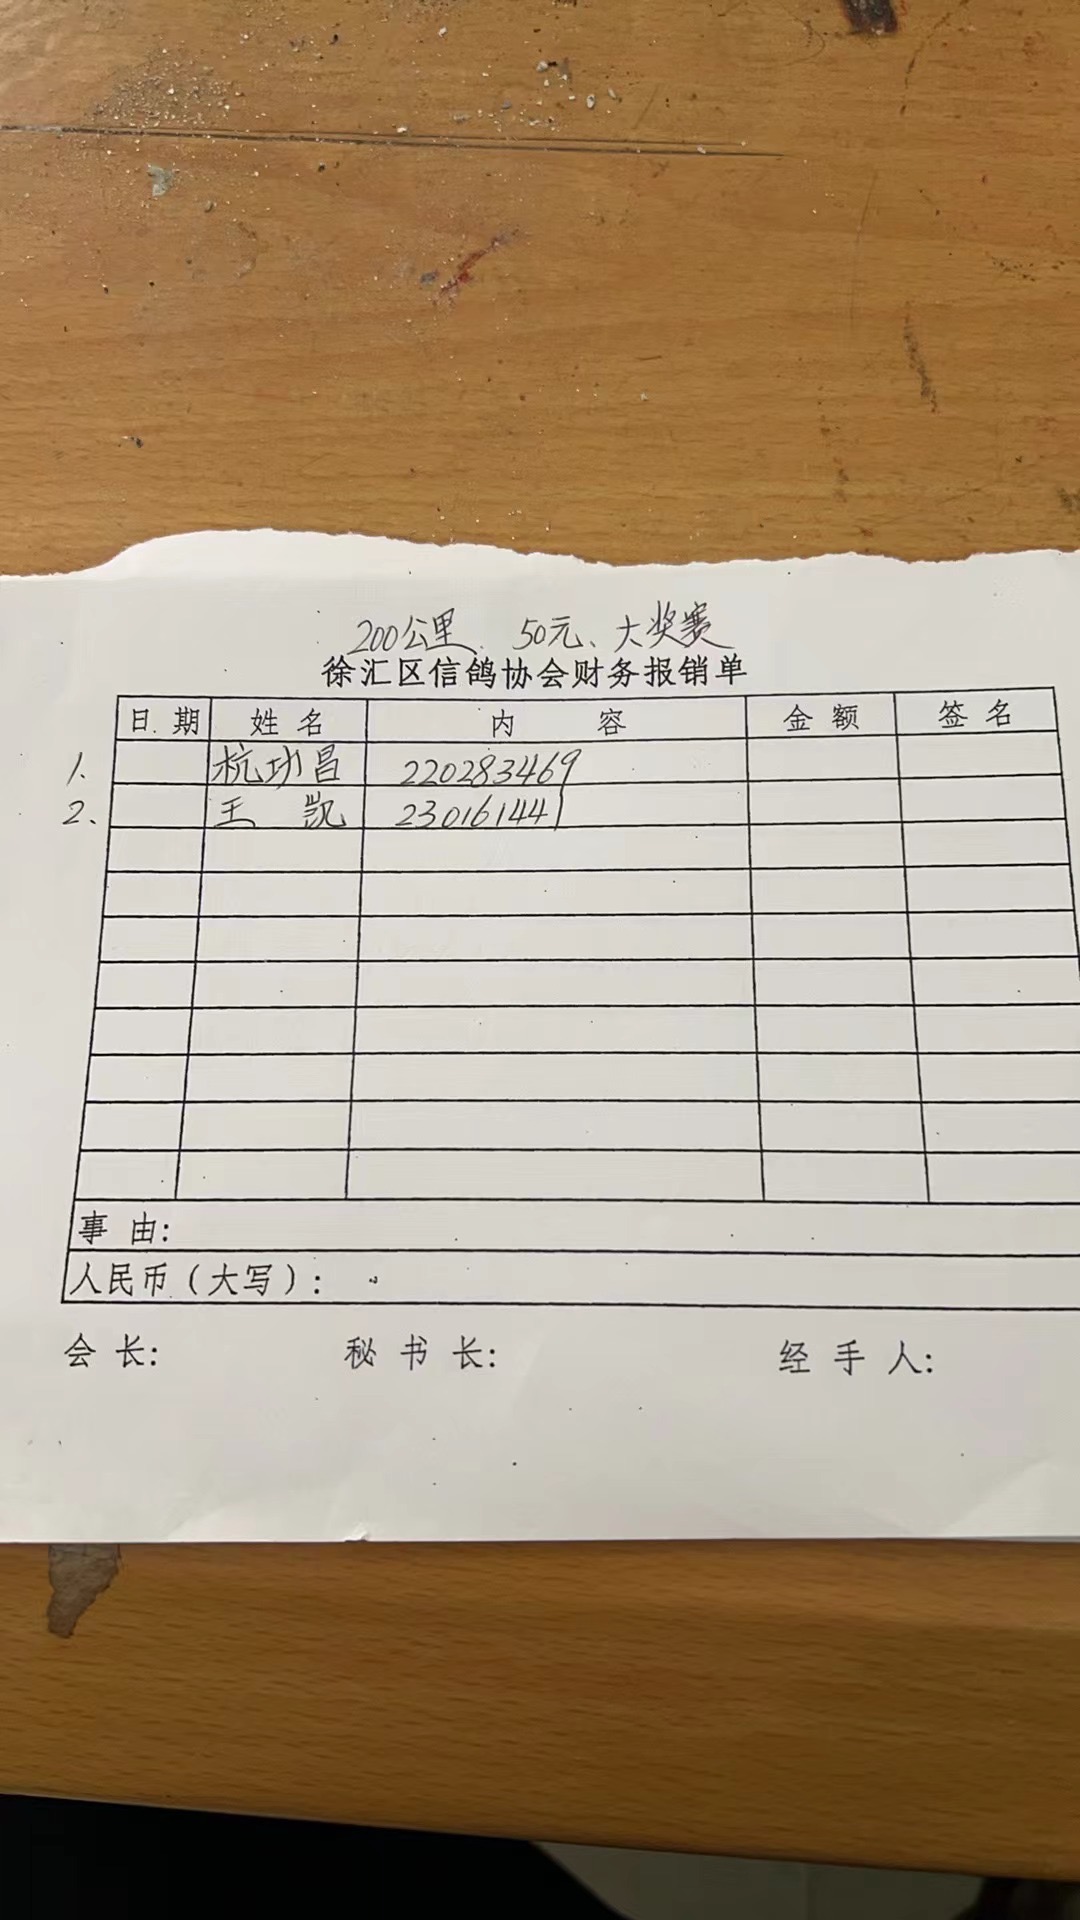 200公里、50元、大奖赛
徐汇区信鸽协会财务报销单
日期 姓名 内容 金额 签名
1、 杭功昌 220283469
2、 王凯 230161441
事由:
人民币（大写）:
会长: 秘书长: 经手人: